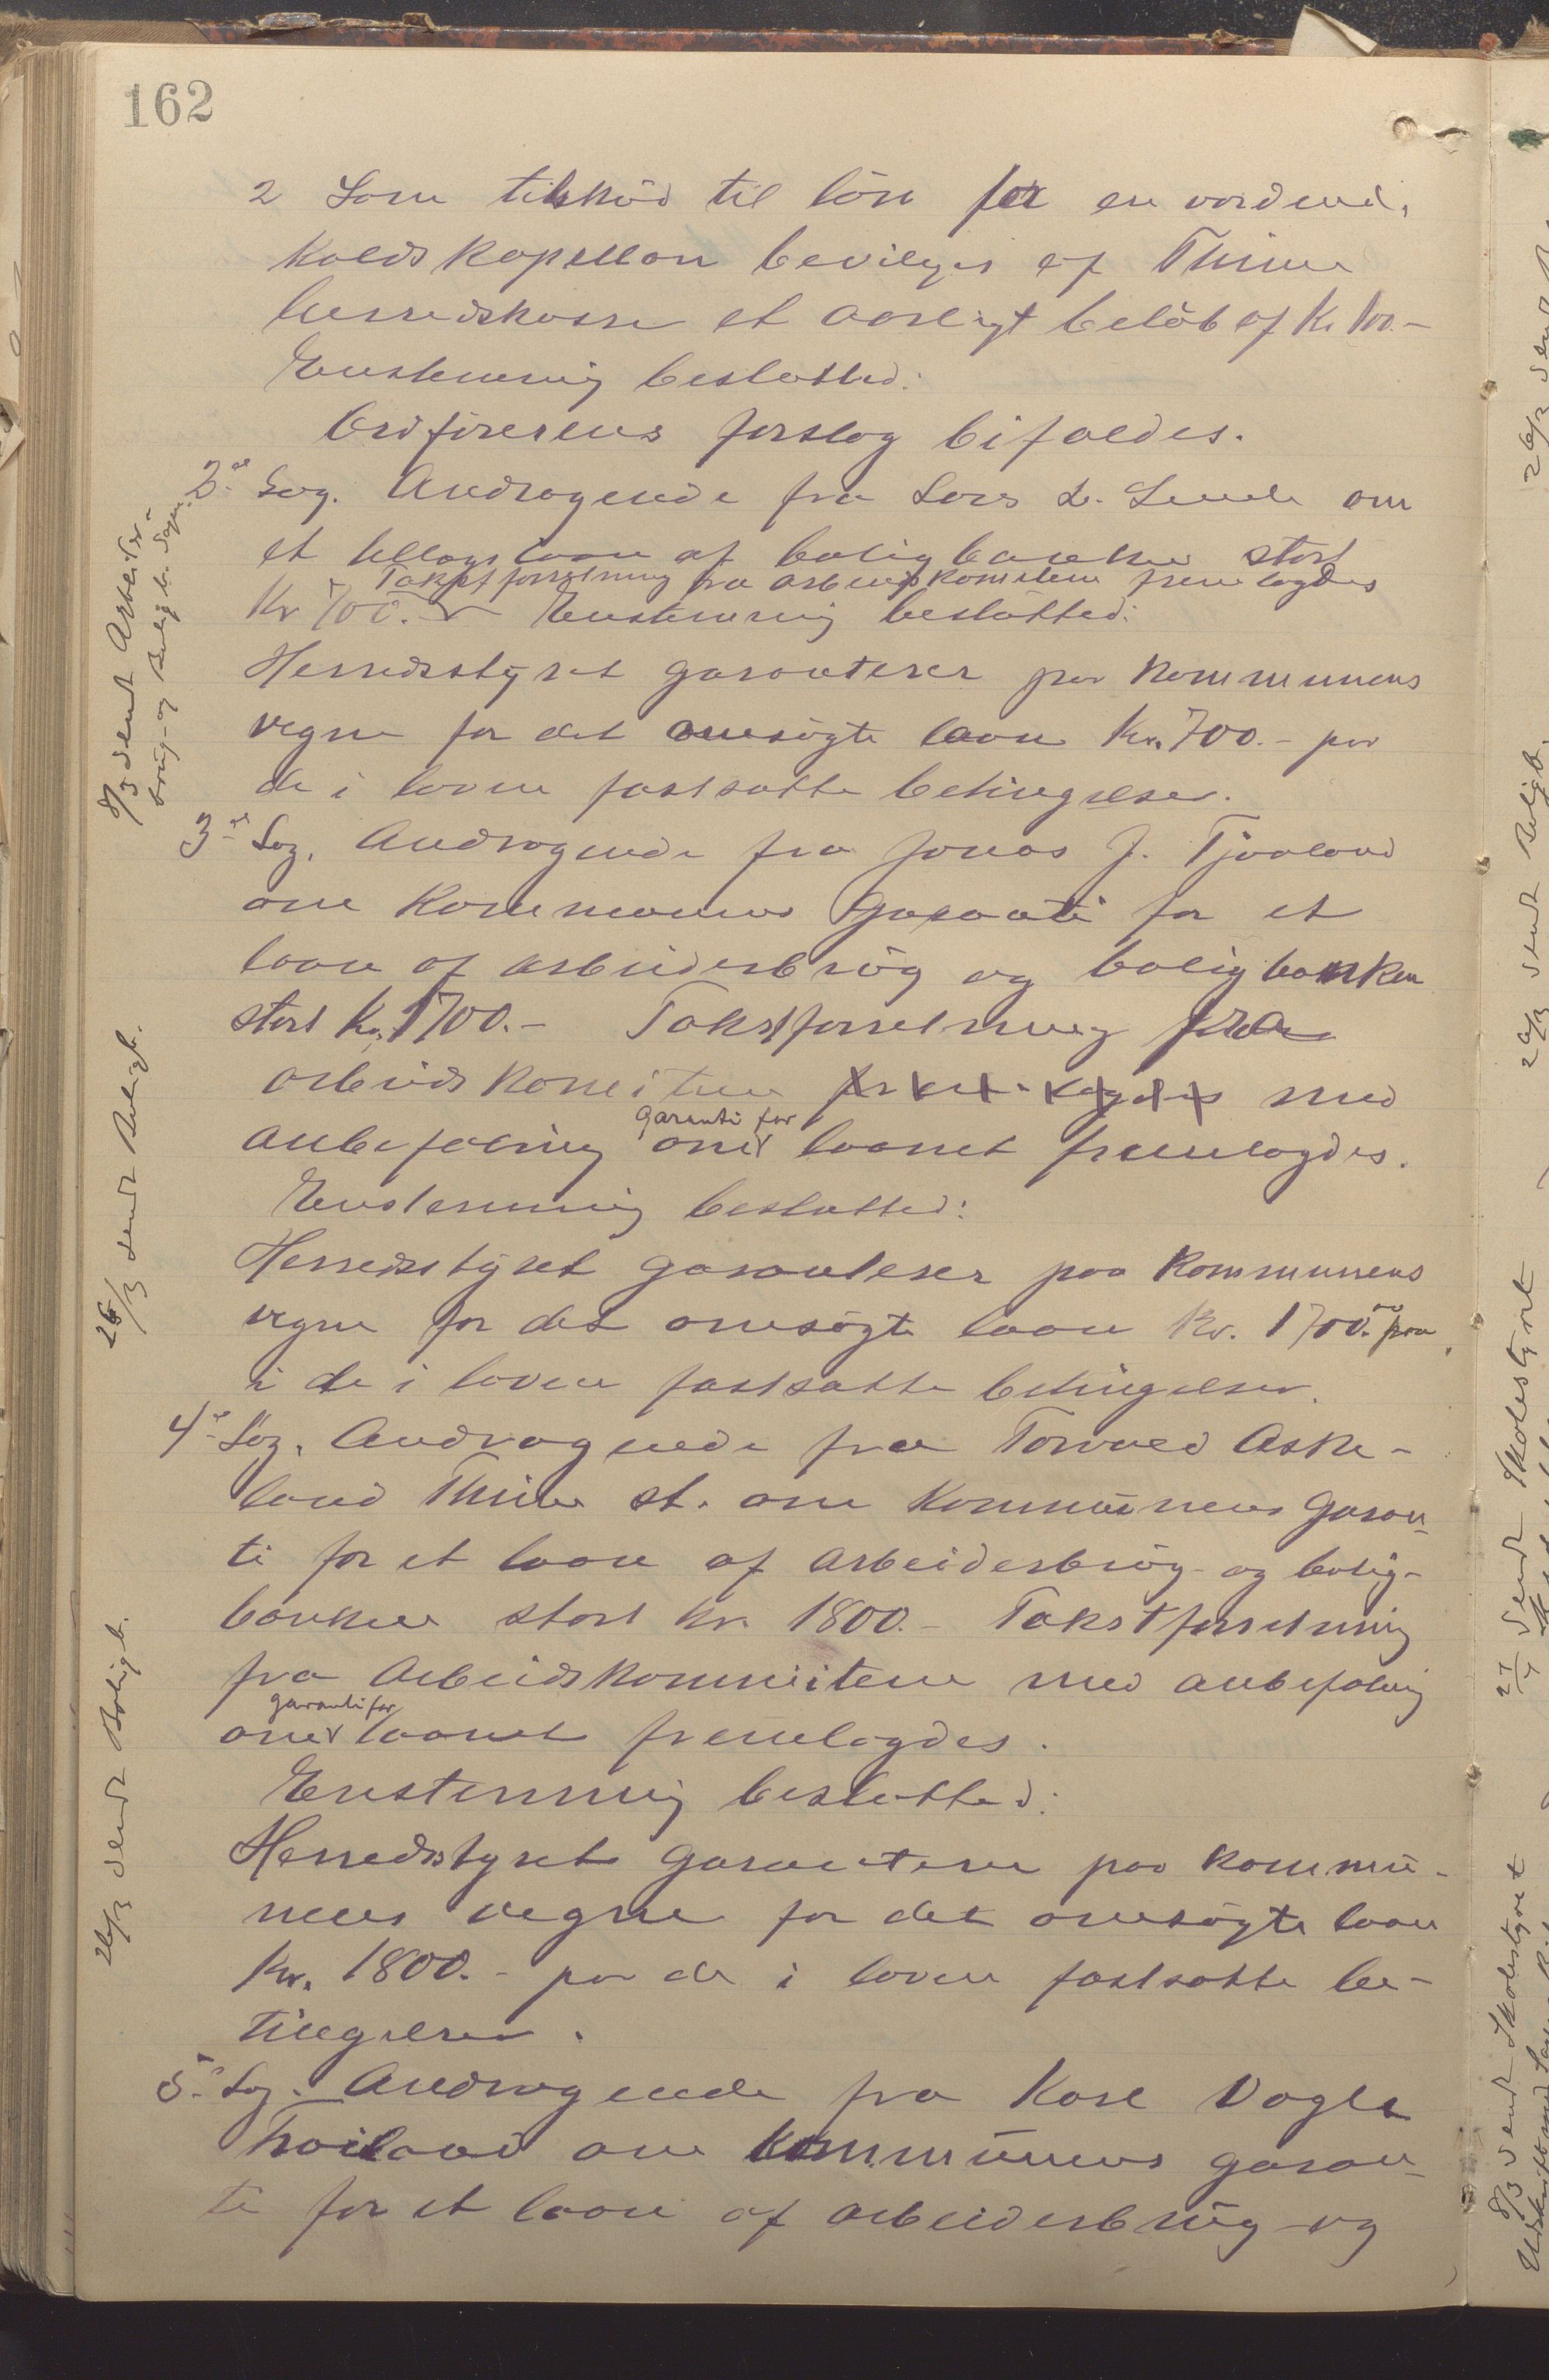 162
2 Som tilskud til lön for en vordende
kaldskapellan bevilges af Thime
herredskasse et aarligt belöb af Kr. 100.-
Enstemmig beslutted:
Ordførerens forslag bifaldes.
2den Sag. Andragende fra Lars L. Lende om
et tillægslaan af boligbanken stort
Takstforretning fra arbeidskomiteen fremlagdes
Kr 700.- Enstemmig beslutted:
Herredsstyret garanterer paa kommunens
vegne for det omsögte laan Kr. 700.- paa
de i loven fastsatte betingelser.
3die Sag. Andragende fra Jonas J. Tjaaland
om Kommunens Garanti for et
laan af arbeiderbrüg og boligbanken
stort Kr. 1700.- Takstforretning fra
arbeidskomiteen fremlagdes med
garanti for
anbefaling om laanet fremlagdes.
Enstemmig besluttet:
Herredsstyret garanterer paa kommunens
vegne for det omsögte laan Kr. 1700.- paa
i de i loven fastsatte betingelser.
4de Sag. Andragende fra Torvald Aske-
land Thime st. om Kommünens Garan-
ti for et laan af arbeiderbrüg- og bolig-
banken stort kr. 1800.- Takstforretning
fra Arbeidskommiteen med anbefaling
garanti for
om laanet fremlagdes.
Enstemmig beslutted:
Herredsstyret garanterer paa kommü-
nens vegne for det omsögte laan
Kr. 1800.- paa de i loven fastsatte be-
tingelser.
5te Sag. Andragende fra Karl Vagle
Frøiland om kommünens garan-
ti for et laan af arbeiderbrüg- og
8/3 sendt Arbeider-
brug- og Boligb. Sagen.
26/3 sendt Boligb.
26/3 sendt Boligb.
26/3 sendt Boligb.
27/4 sendt Skolestyret
8/3 sendt Skolestyret